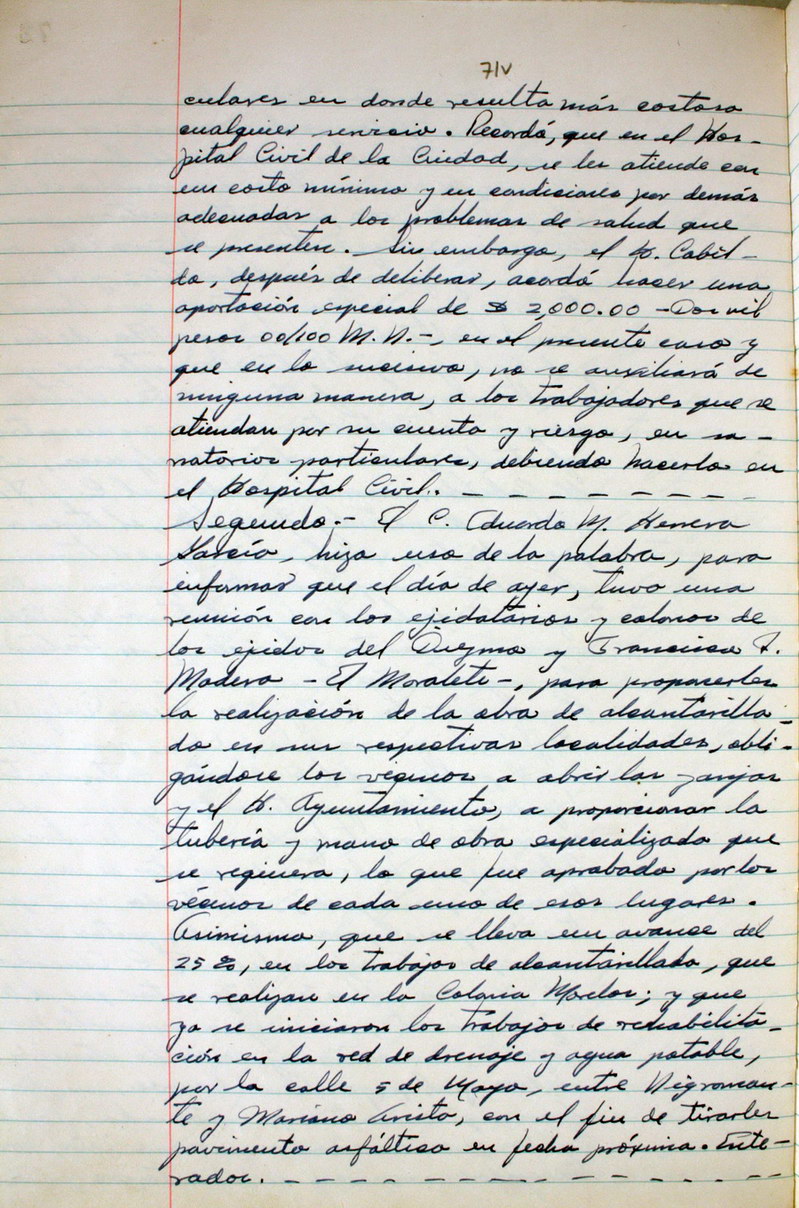 71v
culares en donde resulta más costoso
cualquier servicio. Recordó, que en el Hos-
pital Civil de la Ciudad, se les atiende con
un costo mínimo y en condiciones por demás
adecuadas a los problemas de salud que
se presenten. Sin embargo, el H. Cabil-
do, después de deliberar, acordó hacer una
aportación especial de $ 2,000.00 -Dos mil
pesos 00/100 M.N.-, en el presente caso y
que en lo sucesivo, no se auxiliará de
ninguna manera, a los trabajadores que se
atiendan por su cuenta y riesgo, en sa-
natorios particulares, debiendo hacerlo en
el Hospital Civil. - - - - - - - - -
Segundo.- El C. Eduardo M. Herrera
García, hizo uso de la palabra, para
informar que el día de ayer, tuvo una
reunión con los ejidatarios y colonos de
los ejidos del Dogma y Francisco I.
Madero - El Moralete -, para proponerles
la realización de la obra de alcantarilla-
do en sus respectivas localidades, obli-
gándose los vecinos a abrir las zanjas
y el H. Ayuntamiento, a proporcionar la
tubería y mano de obra especializada que
se requiera, lo que fue aprobado por los
vecinos de cada uno de esos lugares.
Asimismo, que se lleva un avance del
25%, en los trabajos de alcantarillado, que
se realizan en la Colonia Morelos; y que
ya se iniciaron los trabajos de rehabilita-
ción en la red de drenaje y agua potable,
por la calle 5 de Mayo, entre Nigroman-
te y Mariano Arista, con el fin de tirarles
pavimento asfáltico en fecha próxima. Ente-
rados. - - - - - - - - - - - - - - -